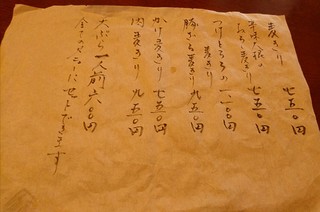 麦きり 七五〇
辛味大根の
おろし麦きり 七五〇円
つけとろろの 一一〇〇円
麦きり
豚ざる麦きり 九五〇円
かけ麦きり 七五〇円
肉麦きり 九五〇円
天ぷら一人前 六〇〇円
全てのメニューにセットできます